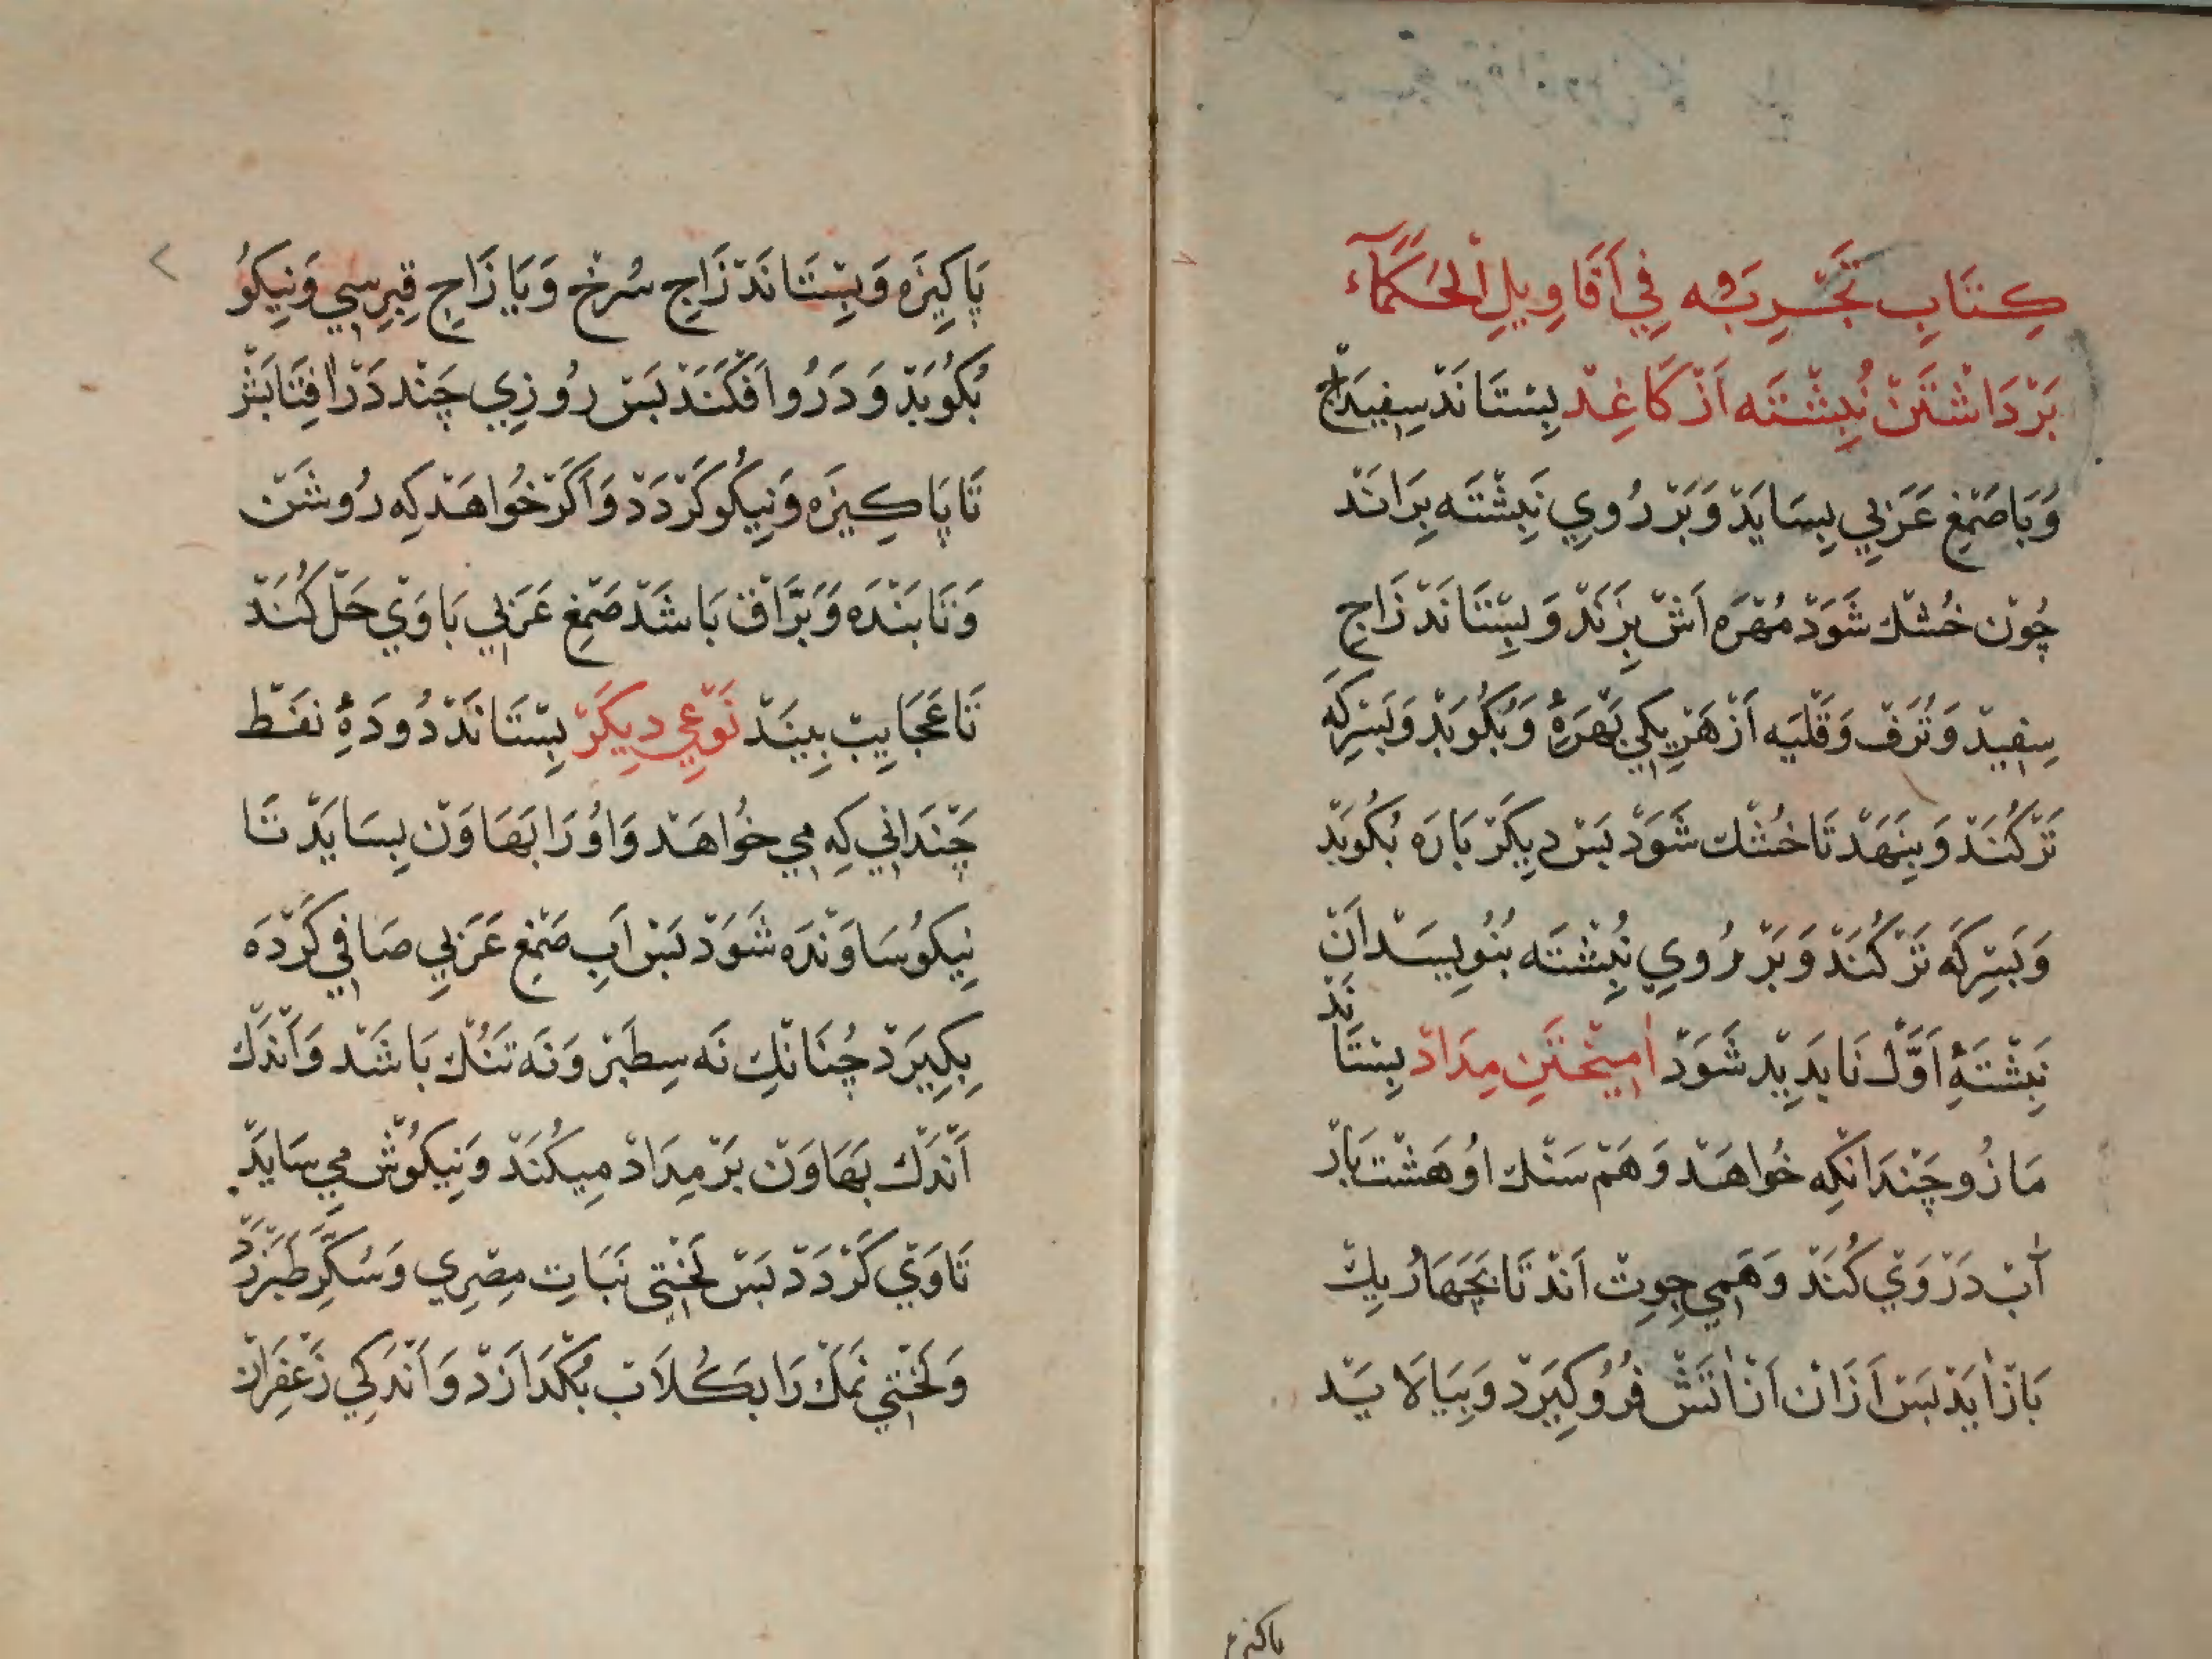 كِتَابِ تَجْرِبَه فِي أَقَاوِيلِ الْحُكَمَآء
بَرْدَاشْتَنْ نُبِشْتَه اَزْ كَاغِدْ بِسْتَانَدْ سِفِيدَاج
وَبَا صَمْغِ عَرَبِي بِسَايَدْ وَبَرْ رُوِي نَبِشْتَه بِرَانَدْ
چُوْن خُشْك شَوَدْ مُهْرَه اَشْ بِزَنَدْ وَبِسْتَانَدْ زَاجِ
سِفِيدْ وَتُرَفْ وَقَلْيَه اَزْ هَرْ يِكِي بَهْرَهٔ وَبُكُوبَدْ وَبَسِرْكَه
تَرْ كُنَدْ وَبِنِهَدْ تَا خُشْك شَوَدْ بَسْ دِيكَرْ بَارَه بُكُوبَدْ
وَبَسِرْكَه تَرْ كُنَدْ وَبَرْ رُوِي نُبِشْتَه بُنُوِيسَدْ اَنْ
نَبِشْتَهِٔ اَوَّلْ نَابَدِيدْ شَوَدْ اٰمِيخْتَنِ مِدَادْ بِسْتَانَدْ
مَازُو چَنْدَانْكِه خُواهَدْ وَهَمْ سَنْك اُو هَشْت بَارْ
اٰبْ دَرْ وَيْ كُنَدْ وَهَمِي جُوِشْ اَنَدْ تَا بَچَهَارْ يِك
بَازْ اٰيَدْ بَسْ اَزَانْ اَزْ اٰتَشْ فُرُو كِيرَدْ وَبِيَالَايَدْ
پاكيزه
پَاكِيزَه وَبِسْتَانَدْ زَاجِ سُرْخ وَيَا زَاجِ قِبْرِسِي وَنِيكُو
بُكُوبَدْ وَدَرُو اَفْكَنَدْ بَسْ رُوزِي چَنْد دَرْ اٰفِتَابْ نِهَدْ
تَا پَاكِيزَه وَنِيكُو كَرْدَدْ وَاَكَرْ خُواهَدْ كِه رُوشَنْ
وَتَابَنْدَه وَبَرَّاقْ بَاشَدْ صَمْغِ عَرَبِي بَا وَيْ حَلْ كُنَدْ
تَا عَجَايِبْ بِينَدْ نَوْعِي دِيكَرْ بِسْتَانَدْ دُودَهِٔ نَفْط
چَنْدَانِي كِه مِي خُواهَدْ وَاُو رَا بَهَاوَنْ بِسَايَدْ تَا
نِيكُو سَاوَنْدَه شَوَدْ بَسْ اَبِ صَمْغِ عَرَبِي صَافِي كَرْدَه
بِكِيرَدْ چُنَانْكِ نَه سِطَبْرْ وَنَه تَنُكْ بَاشَدْ وَاَنْدَكْ
اَنْدَكْ بَهَاوَنْ بَرْ مِدَادْ مِيكُنَدْ وَنِيكُوشْ مِي سَايَدْ
تَا وَيْ كَرْدَدْ بَسْ لَخْتِي نَبَاتِ مِصْرِي وَسُكَّرِ طَبَرْزَدْ
وَلَخْتِي نَمَكْ رَا بَكُلَابْ بُكْدَازَدْ وَاَنْدَكِي زَعْفِرَانْ